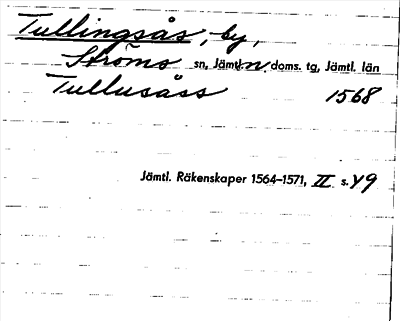 Tullingsås, by,
Ströms sn, Jämtl. n. doms. tg, Jämtl. län
Tullusåss 1568
Jämtl. Räkenskaper 1564–1571, II s. 49